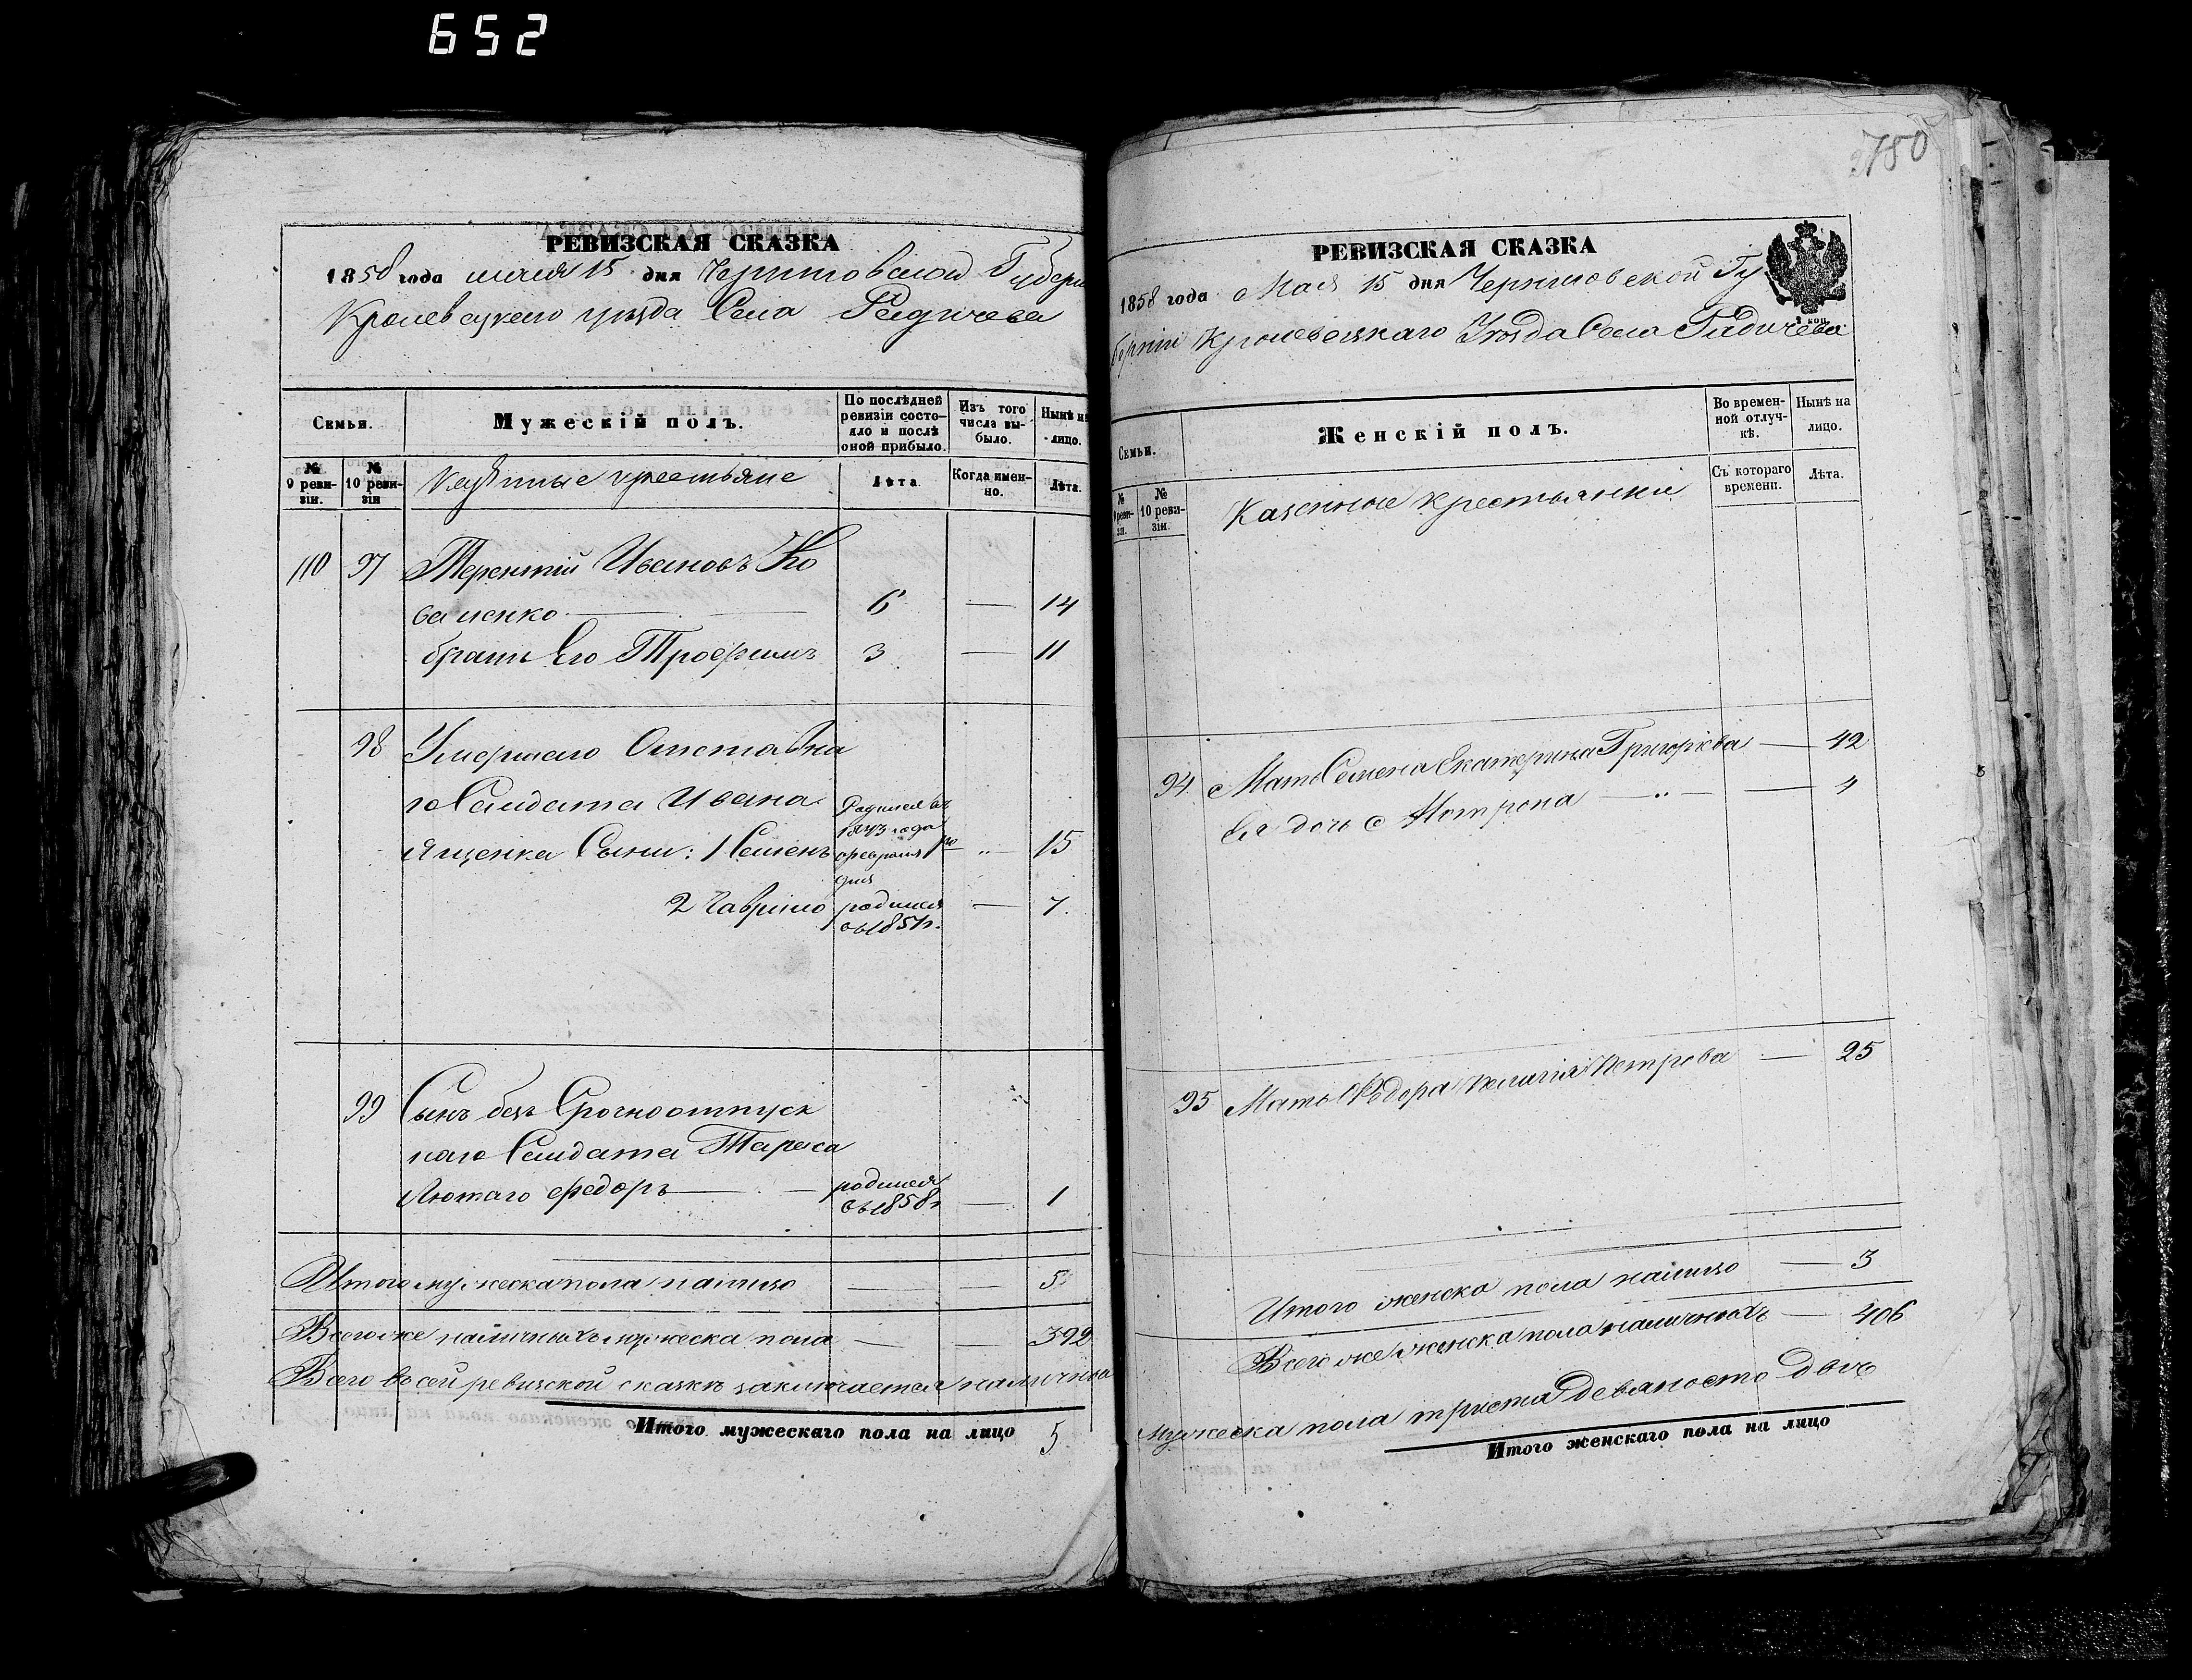 652
РЕВИЗСКАЯ СКАЗКА
1858 года мая 15 дня Черниговской Губерн
Кролевецкого уѣзда Села Радичева
Семьи.
Мужескій полъ.
По послѣдней ревизіи состояло и послѣ оной прибыло.
Изъ того числа выбыло.
Нынѣ на лицо.
№ 9 ревизіи.
№ 10 ревизіи
Казенные крестьяне
Лѣта.
Когда именно.
Лѣта.
110 97 Терентій Ивановъ Ко
валенко 6 — 14
братъ Его Трофимъ 3 — 11
98 Умершаго Отставна
го Салдата Ивана
Родился въ
1843 года
Ященка Сыни: 1 Семенъ февраля 1го 15
дня
2 Гаврило родился — 7.
въ 1851г.
99 Сынъ безъ Срочноотпуск
наго Салдата Тараса
Лютаго Федоръ — родился — 1
въ 1858г
Итого мужеска пола налицо — — 5
Всего же наличныхъ мужеска пола — — 392
Всего въ сей ревизской сказкѣ заключается налично
Итого мужескаго пола на лицо 5
2780
РЕВИЗСКАЯ СКАЗКА
1858 года Мая 15 дня Черниговской Гу
берніи Кролевецкаго Уѣзда Села Радичева
Семьи.
Женскій полъ.
Во временной отлучкѣ.
Нынѣ на лицо.
№ 9 ревизіи.
№ 10 ревизіи.
Казенные крестьянки
Съ котораго времени.
Лѣта.
94 Мать Семена Екатерина Григоріева — 42
Ея дочь Мотрона — 4
95 Мать Федора Пелагія Петрова — 25
Итого женска пола налицо — 3
Всего же женска пола наличныхъ — 406
мужеска пола триста девяносто двѣ
Итого женскаго пола на лицо